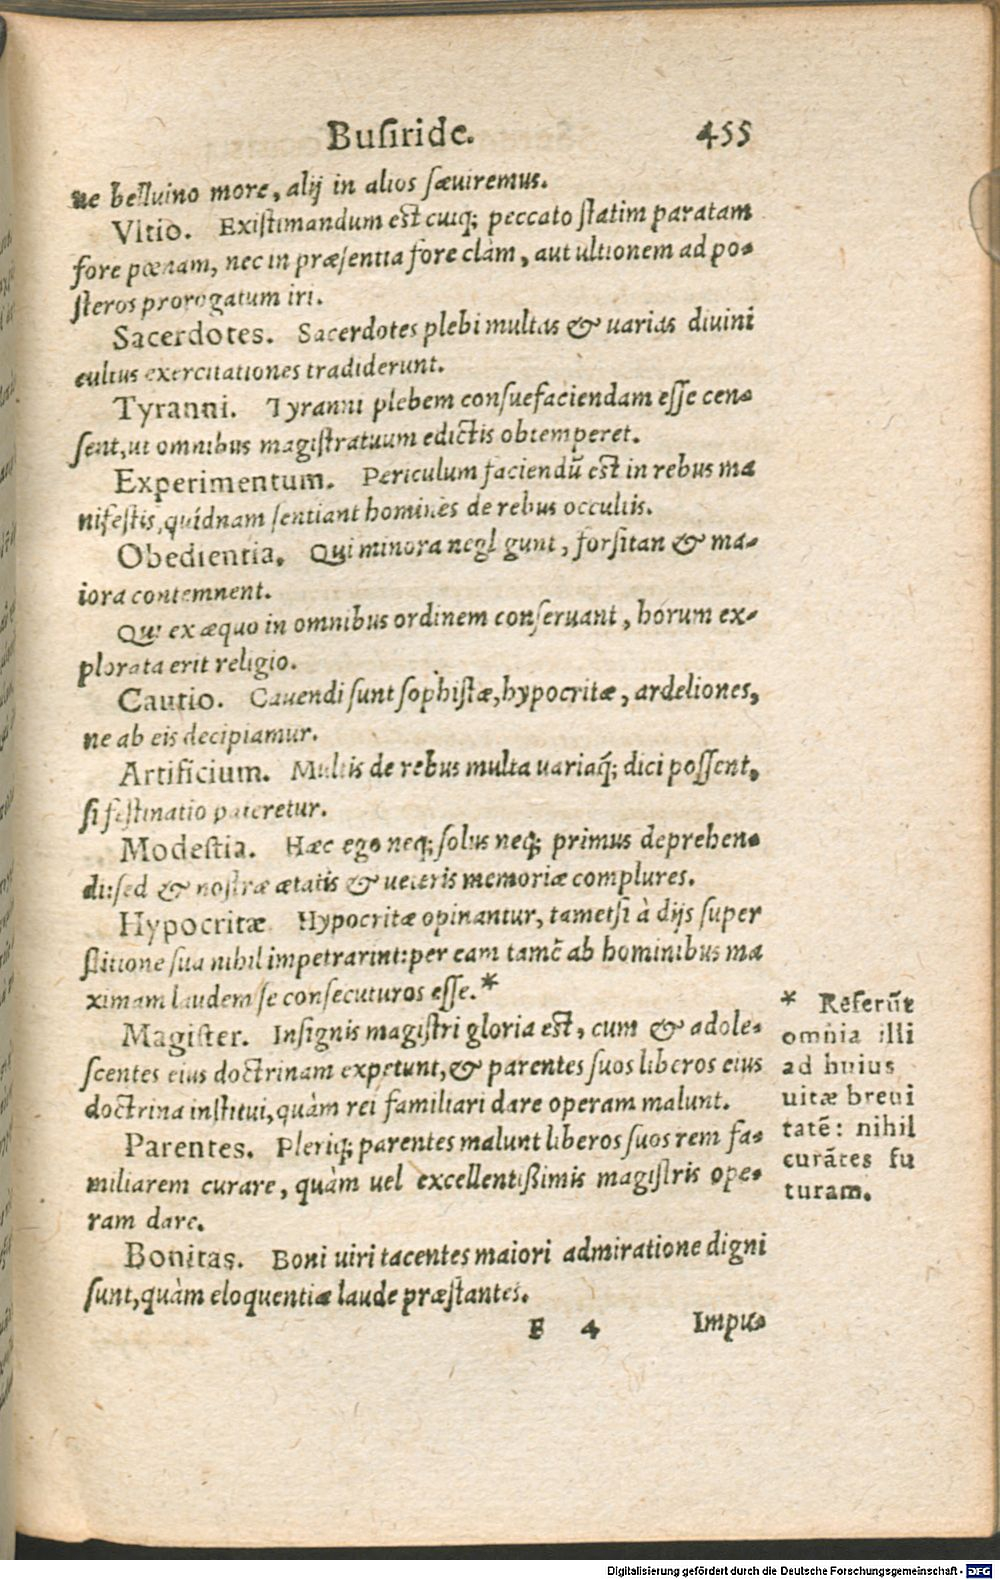 Buſiride. 455
ne belluino more, alij in alios ſæuiremus.
Vltio. Exiſtimandum eſt cuiq; peccato ſtatim paratam
fore pœnam, nec in præſentia fore clàm, aut ultionem ad po-
ſteros prorogatum iri.
Sacerdotes. Sacerdotes plebi multas & uarias diuini
cultus exercitationes tradiderunt.
Tyranni. Tyranni plebem conſuefaciendam eſſe cen-
ſent, ut omnibus magiſtratuum edictis obtemperet.
Experimentum. Periculum faciendũ eſt in rebus ma
nifeſtis, quídnam ſentiant homines de rebus occultis.
Obedientia. Qui minora negl gunt, forſitan & ma-
iora contemnent.
Qui ex æquo in omnibus ordinem conſeruant, horum ex-
plorata erit religio.
Cautio. Cauendi ſunt ſophiſtæ, hypocritæ, ardeliones,
ne ab eis decipiamur.
Artificium. Multis de rebus multa uariaq́; dici poſſent,
ſi feſtinatio pateretur.
Modeſtia. Hæc ego neq; ſolus neq; primus deprehen-
di: ſed & noſtræ ætatis & ueteris memoriæ complures.
Hypocritæ Hypocritæ opinantur, tametſi à dijs ſuper
ſtitione ſua nihil impetrarint: per eam tamẽ ab hominibus ma
ximam laudem ſe conſecuturos eſſe.*
* Referũt
omnia illi
ad huius
uitæ breui
tatẽ: nihil
curãtes fu
turam.
Magiſter. Inſignis magiſtri gloria eſt, cum & adole-
ſcentes eius doctrinam expetunt, & parentes ſuos liberos eius
doctrina inſtitui, quàm rei familiari dare operam malunt.
Parentes. Pleriq; parentes malunt liberos ſuos rem fa-
miliarem curare, quàm uel excellentißimis magiſtris ope-
ram dare.
Bonitas. Boni uiri tacentes maiori admiratione digni
ſunt, quàm eloquentiæ laude præſtantes.
F 4 Impu-
Digitalisierung gefördert durch die Deutsche Forschungsgemeinschaft - DFG